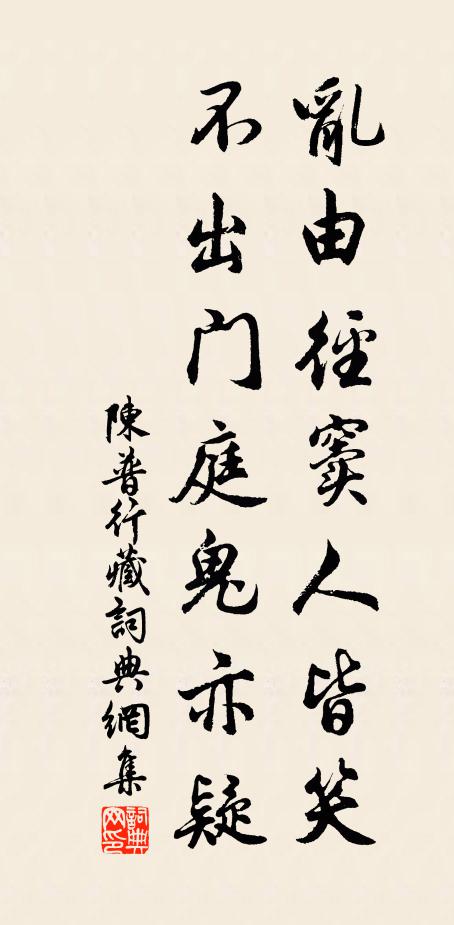 亂由徑竇人皆笑
不出門庭鬼亦疑
陳普行藏詞典網集
詞典
网印